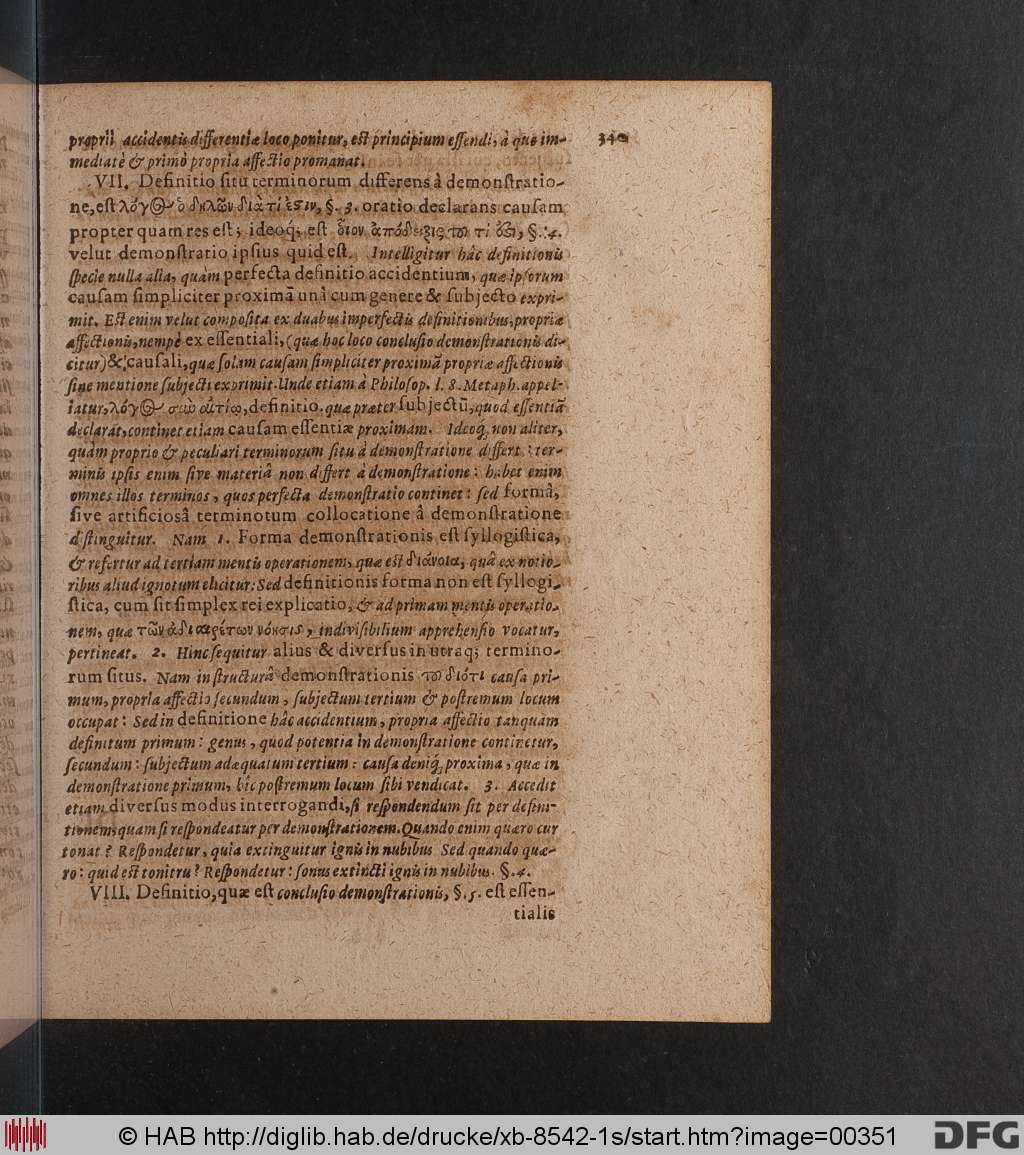 proprii accidentis differentiæ loco ponitur, est principium essendi, à quo im-
340
mediatè & primò propria affectio promanat.
VII. Definitio situ terminorum differens à demonstratio-
ne, est λόγος ὁ δηλῶν διὰ τί ἐστιν, §. 3. oratio declarans causam
propter quam res est; ideoq; est οἷον ἀπόδειξις τοῦ τί ὅξι, §. 4.
velut demonstratio ipsius quid est. Intelligitur hâc definitionis
specie nulla alia, quàm perfecta definitio accidentium, quæ ipsorum
causam simpliciter proximā unà cum genere & subjecto expri-
mit. Est enim velut composita ex duabus imperfectis definitionibus, propriæ
affectionis, nempè ex essentiali, (quæ hoc loco conclusio demonstrationis di-
citur) & causali, quæ solam causam simpliciter proximā propriæ affectionis
sine mentione subjecti exprimit. Unde etiam à Philosop. l. 8. Metaph. appel-
latur, λόγος σαὺ αἰτίῳ, definitio. quæ præter subjectū, quod essentiā
declarat, continet etiam causam essentiæ proximam. Ideoq; non aliter,
quàm proprio & peculiari terminorum situ à demonstratione differt: ter-
minis ipsis enim sive materiâ non differt à demonstratione: habet enim
omnes illos terminos, quos perfecta demonstratio continet: sed formâ,
sive artificiosâ terminotum collocatione â demonstratione
distinguitur. Nam 1. Forma demonstrationis est syllogistica,
& refertur ad tertiam mentis operationem, quæ est διάνοια, quâ ex notio-
ribus aliud ignotum elicitur: Sed definitionis forma non est syllogi-
stica, cum sit simplex rei explicatio, & ad primam mentis operatio-
nem, quæ τῶν ἀδιαιρέτων νόησις, indivisibilium apprehensio vocatur,
pertineat. 2. Hinc sequitur alius & diversus in utraq; termino-
rum situs. Nam in structurâ demonstrationis τοῦ διότι causa pri-
mum, propria affectio secundum, subjectum tertium & postremum locum
occupat: Sed in definitione hâc accidentium, propria affectio tanquam
definitum primum: genus, quod potentia in demonstratione continetur,
secundum: subjectum adæquatum tertium: causa deniq; proxima, quæ in
demonstratione primum, hîc postremum locum sibi vendicat. 3. Accedit
etiam diversus modus interrogandi, si respondendum sit per defini-
tionem, quam si respondeatur per demonstrationem. Quando enim quæro cur
tonat? Respondetur, quia extinguitur ignis in nubibus Sed quando quæ-
ro: quid est tonitru? Respondetur: sonus extincti ignis in nubibus. §. 4.
VIII. Definitio, quæ est conclusio demonstrationis, §. 5. est essen-
tialis
© HAB http://diglib.hab.de/drucke/xb-8542-1s/start.htm?image=00351
DFG